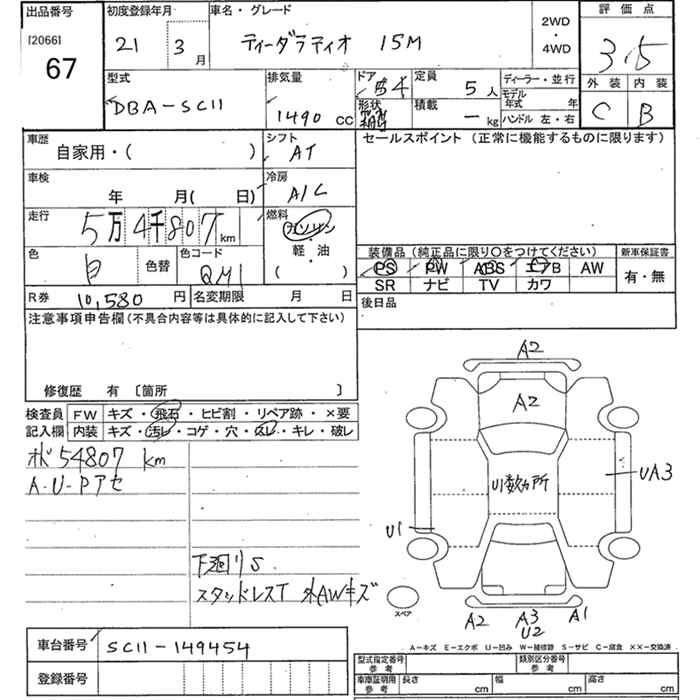 出品番号 初度登録年月 車名・グレード 2WD・4WD 評価点
[2066]
67
21 3月 ティーダラティオ 15M 3.5
外装 内装
C B
型式 排気量 ドア 定員 ディーラー・並行
DBA-SC11 1490 CC 4 5人
形状 積載 モデル年式 年
一 kg ハンドル 左・右
車歴 シフト セールスポイント (正常に機能するものに限ります)
自家用・( ) AT
車検 冷房
年 月( 日) A/C
走行 燃料
5万4千807km ガソリン・軽・油 ( )
色 色替 色コード
白 QM1
装備品 (純正品に限り○をつけてください) 新車保証書
PS PW ABS エアB AW 有・無
SR ナビ TV カワ
R券 10,580円 名変期限 月 日 後日品
注意事項申告欄(不具合内容等は具体的に記入して下さい)
修復歴 有 〔箇所 〕
検査員 FW キズ・飛石・ヒビ割・リペア跡・×要
記入欄 内装 キズ・汚レ・コゲ・穴・スレ・キレ・破レ
ホド54807 km
A-U-Pアセ
下廻りS
スタッドレスT 外AWキズ
A2
A2
U1数ヵ所
UA3
U1
スペア
A2 A3 A1
U2
A-キズ E-エクボ U-凹み W-補修跡 S-サビ C-腐食 XX-交換済
車台番号 SC11-149454
登録番号
型式指定番号 参考 類別区分番号 参考
車庫証明用 参考 長さ cm 幅 cm 高さ cm